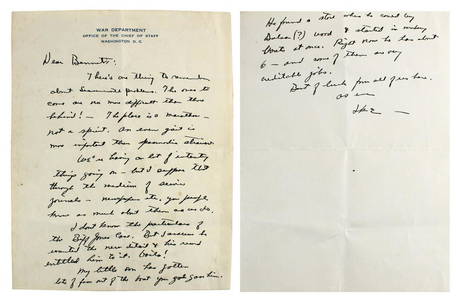 WAR DEPARTMENT
OFFICE OF THE CHIEF OF STAFF
WASHINGTON D. C.
Dear Bennett:
There's one thing to remember
about Louisiana problems. The ones to
come are more difficult than those
behind! - The place is a marathon -
not a sprint. An even gait is
more important than spasmodic
We're having a lot of interesting
things going on - but I suppose that
through the medium of service
journals - newspapers etc. you people
know as much about them as we do.
I don't know the particulars of
the Biff Jones Case. But I
wanted the new detail & his record
entitled him to it.
My little son has gotten
lots of fun out of the boat you got him.
He found a store where he could buy
Balsa (?) wood & started in making
boats at once. Right now he has about
6 - and some of them are very
creditable jobs.
Best of luck from all of us here.
as ever
Ike -